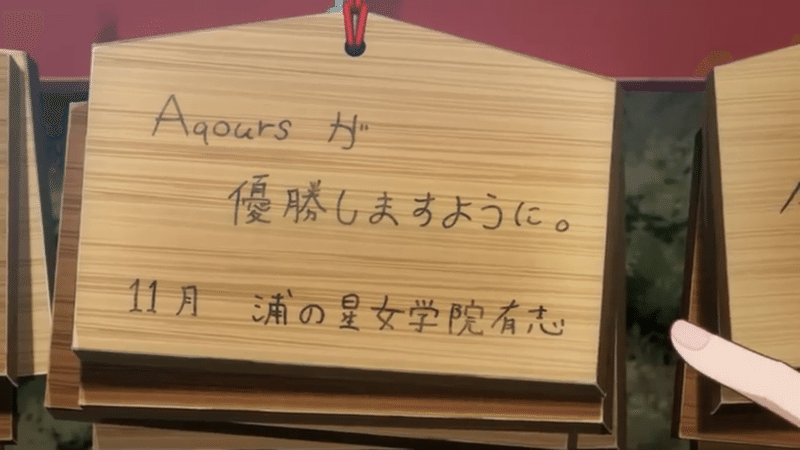 Aqoursが
優勝しますように。
11月 浦の星女学院有志